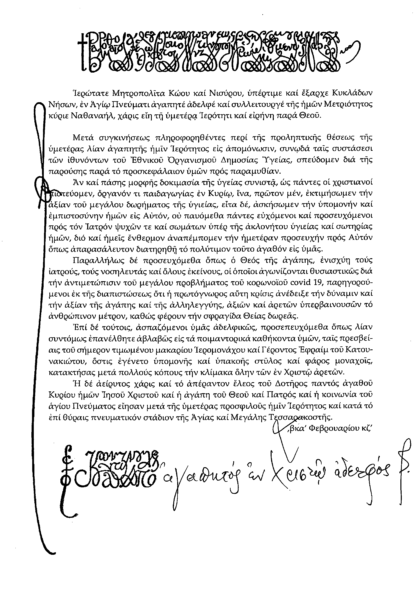 Ἱερώτατε Μητροπολῖτα Κώου καί Νισύρου, ὑπέρτιμε καί ἔξαρχε Κυκλάδων
Νήσων, ἐν Ἁγίῳ Πνεύματι ἀγαπητέ ἀδελφέ καί συλλειτουργέ τῆς ἡμῶν Μετριότητος
κύριε Ναθαναήλ, χάρις εἴη τῇ ὑμετέρᾳ Ἱερότητι καί εἰρήνη παρά Θεοῦ.
Μετά συγκινήσεως πληροφορηθέντες περί τῆς προληπτικῆς θέσεως τῆς
ὑμετέρας λίαν ἀγαπητῆς ἡμῖν Ἱερότητος εἰς ἀπομόνωσιν, συνῳδά ταῖς συστάσεσι
τῶν ἰθυνόντων τοῦ Ἐθνικοῦ Ὀργανισμοῦ Δημοσίας Ὑγείας, σπεύδομεν διά τῆς
παρούσης παρά τό προσκεφάλαιον ὑμῶν πρός παραμυθίαν.
Ἄν καί πάσης μορφῆς δοκιμασία τῆς ὑγείας συνιστᾷ, ὡς πάντες οἱ χριστιανοί
πιστεύομεν, ὄργανόν τι παιδαγωγίας ἐν Κυρίῳ, ἵνα, πρῶτον μέν, ἐκτιμήσωμεν τήν
ἀξίαν τοῦ μεγάλου δωρήματος τῆς ὑγιείας, εἶτα δέ, ἀσκήσωμεν τήν ὑπομονήν καί
ἐμπιστοσύνην ἡμῶν εἰς Αὐτόν, οὐ παυόμεθα πάντες εὐχόμενοι καί προσευχόμενοι
πρός τόν Ἰατρόν ψυχῶν τε καί σωμάτων ὑπέρ τῆς ἀκλονήτου ὑγιείας καί σωτηρίας
ἡμῶν, διό καί ἡμεῖς ἔνθερμον ἀναπέμπομεν τήν ἡμετέραν προσευχήν πρός Αὐτόν
ὅπως ἀπαρασάλευτον διατηρηθῇ τό πολύτιμον τοῦτο ἀγαθόν εἰς ὑμᾶς.
Παραλλήλως δέ προσευχόμεθα ὅπως ὁ Θεός τῆς ἀγάπης, ἐνισχύῃ τούς
ἰατρούς, τούς νοσηλευτάς καί ὅλους ἐκείνους, οἱ ὁποῖοι ἀγωνίζονται θυσιαστικῶς διά
τήν ἀντιμετώπισιν τοῦ μεγάλου προβλήματος τοῦ κορωνοϊοῦ covid 19, παρηγορού-
μενοι ἐκ τῆς διαπιστώσεως ὅτι ἡ πρωτόγνωρος αὕτη κρίσις ἀνέδειξε τήν δύναμιν καί
τήν ἀξίαν τῆς ἀγάπης καί τῆς ἀλληλεγγύης, ἀξιῶν καί ἀρετῶν ὑπερβαινουσῶν τό
ἀνθρώπινον μέτρον, καθώς φέρουν τήν σφραγῖδα Θείας δωρεᾶς.
Ἐπί δέ τούτοις, ἀσπαζόμενοι ὑμᾶς ἀδελφικῶς, προσεπευχόμεθα ὅπως λίαν
συντόμως ἐπανέλθητε ἀβλαβῶς εἰς τά ποιμαντορικά καθήκοντα ὑμῶν, ταῖς πρεσβεί-
αις τοῦ σήμερον τιμωμένου μακαρίου Ἱερομονάχου καί Γέροντος Ἐφραίμ τοῦ Κατου-
νακιώτου, ὅστις ἐγένετο ὑπομονῆς καί ὑπακοῆς στῦλος καί φάρος μοναχοῖς,
κατακτήσας μετά πολλούς κόπους τήν κλίμακα ὅλην τῶν ἐν Χριστῷ ἀρετῶν.
Ἡ δέ ἀείρυτος χάρις καί τό ἀπέραντον ἔλεος τοῦ Δοτῆρος παντός ἀγαθοῦ
Κυρίου ἡμῶν Ἰησοῦ Χριστοῦ καί ἡ ἀγάπη τοῦ Θεοῦ καί Πατρός καί ἡ κοινωνία τοῦ
ἁγίου Πνεύματος εἴησαν μετά τῆς ὑμετέρας προσφιλοῦς ἡμῖν Ἱερότητος καί κατά τό
ἐπί θύραις πνευματικόν στάδιον τῆς Ἁγίας καί Μεγάλης Τεσσαρακοστῆς.
͵βκα’ Φεβρουαρίου κζ’
ἀγαπητός ἐν Χριστῷ ἀδελφός